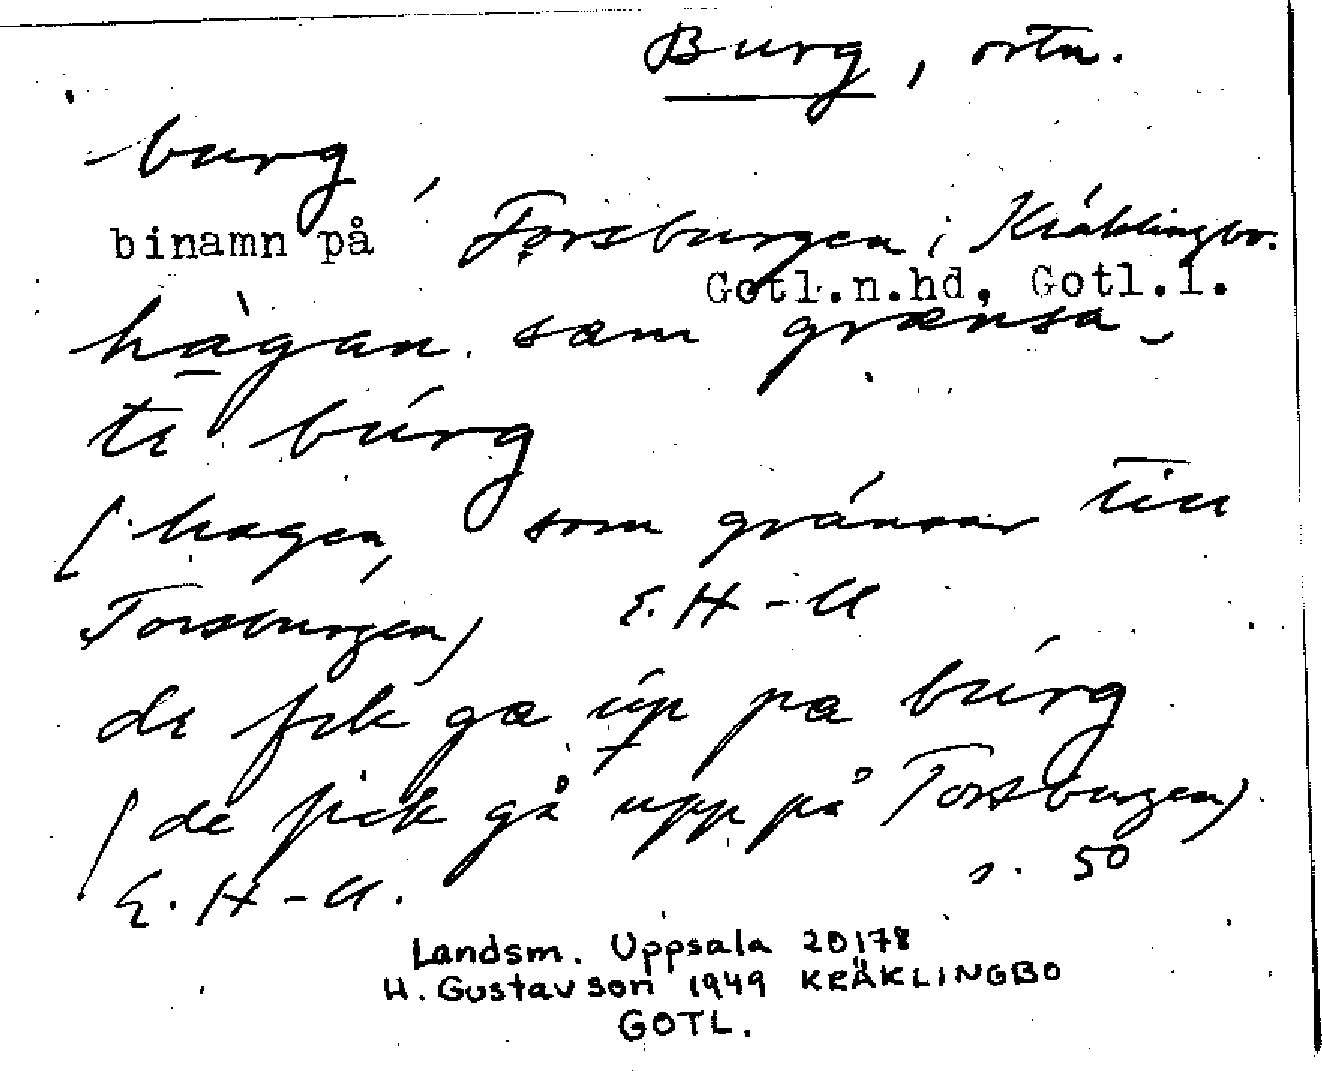 Burg, ortn.
burg,
binamn på Torsburgen i Kräklingbo.
Gotl.n.hd, Gotl.l.
hàgan. sæm grænsa-
te búrg
(hagen, som gränsar till
Torsburgen) E. H-U
de fek ga úp pa búrg
(de fick gå upp på Torsburgen)
E. H-U. s. 50
Landsm. Uppsala 20178
H. Gustavson 1949 KRÄKLINGBO
GOTL.